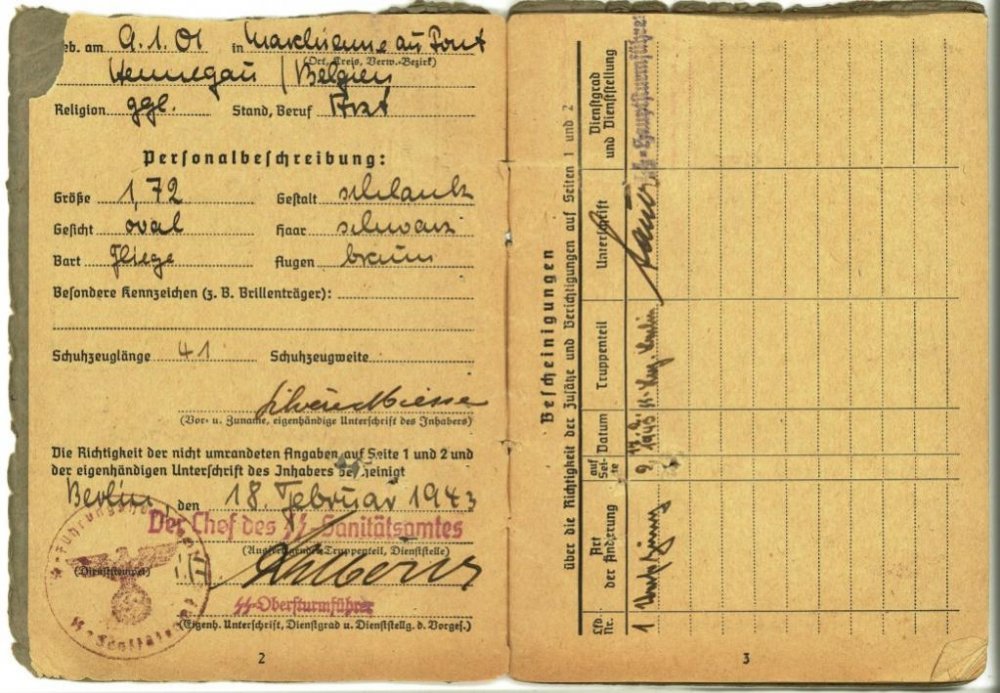 Geb. am 9.1.01 in Marchienne au Pont
(Ort, Kreis, Verw.-Bezirk)
Hennegau / Belgien
Religion ggl. Stand, Beruf Arzt
Personalbeschreibung:
Größe 1,72 Gestalt schlank
Gesicht oval Haar schwarz
Bart Fliege Augen braun
Besondere Kennzeichen (z. B. Brillenträger):
Schuhzeuglänge 41 Schuhzeugweite
(Vor- u. Zuname, eigenhändige Unterschrift des Inhabers)
Die Richtigkeit der nicht umrandeten Angaben auf Seite 1 und 2 und
der eigenhändigen Unterschrift des Inhabers bescheinigt
Berlin, den 18. Februar 1943
Der Chef des SS-Sanitätsamtes
(Ausfertigender Truppenteil, Dienststelle)
(Dienststempel)
SS-Obersturmführer
(Eigenh. Unterschrift, Dienstgrad u. Dienststellg. d. Vorges.)
2
Bescheinigungen
über die Richtigkeit der Zusätze und Berichtigungen auf Seiten 1 und 2
Lfd. Nr. Art der Änderung auf Sei- te Datum Truppenteil Unterschrift Dienstgrad und Dienststellung
1 9 SS-Hauptsturmführer
3